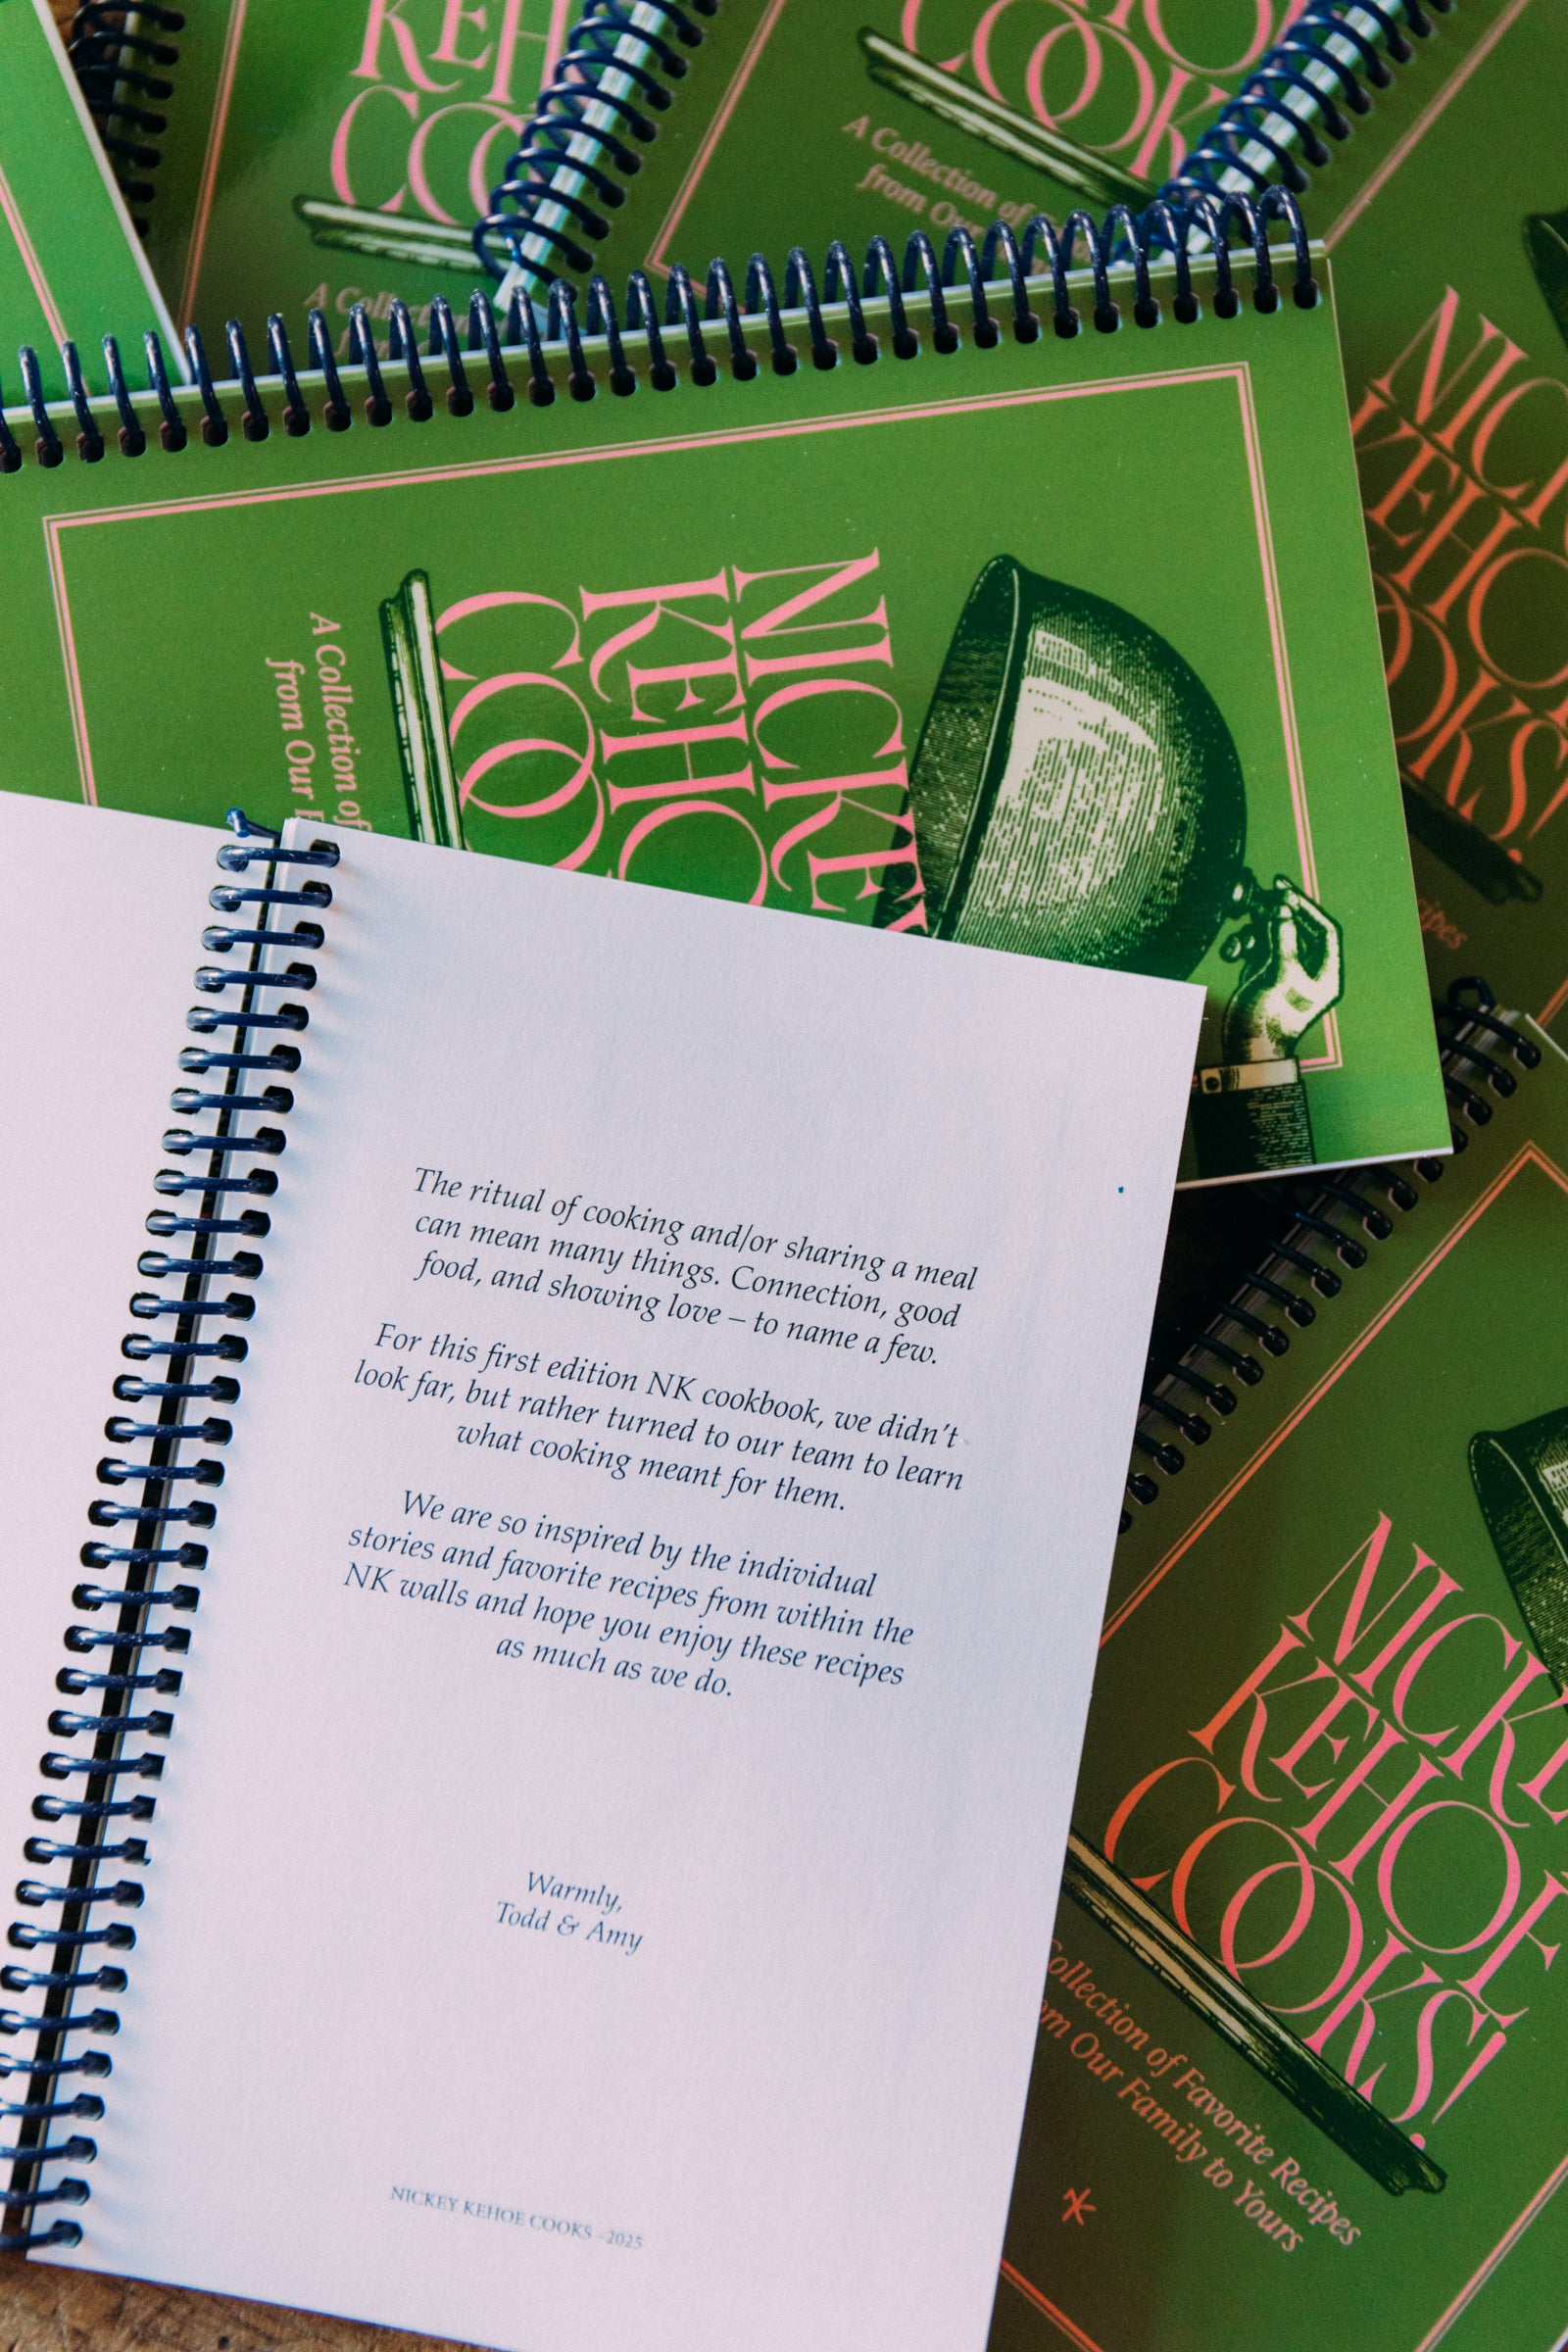 KEH
CO
A Collection
COOK
A Collection of
from Our
NICKEY
KEHO
COO
A Collection of
from Our
NICK
KEHO
OOKS!
ipes
The ritual of cooking and/or sharing a meal
can mean many things. Connection, good
food, and showing love – to name a few.
For this first edition NK cookbook, we didn't
look far, but rather turned to our team to learn
what cooking meant for them.
We are so inspired by the individual
stories and favorite recipes from within the
NK walls and hope you enjoy these recipes
as much as we do.
Warmly,
Todd & Amy
NICKEY KEHOE COOKS – 2025
NICKE
KEHOE
COOKS!
Collection of Favorite Recipes
om Our Family to Yours